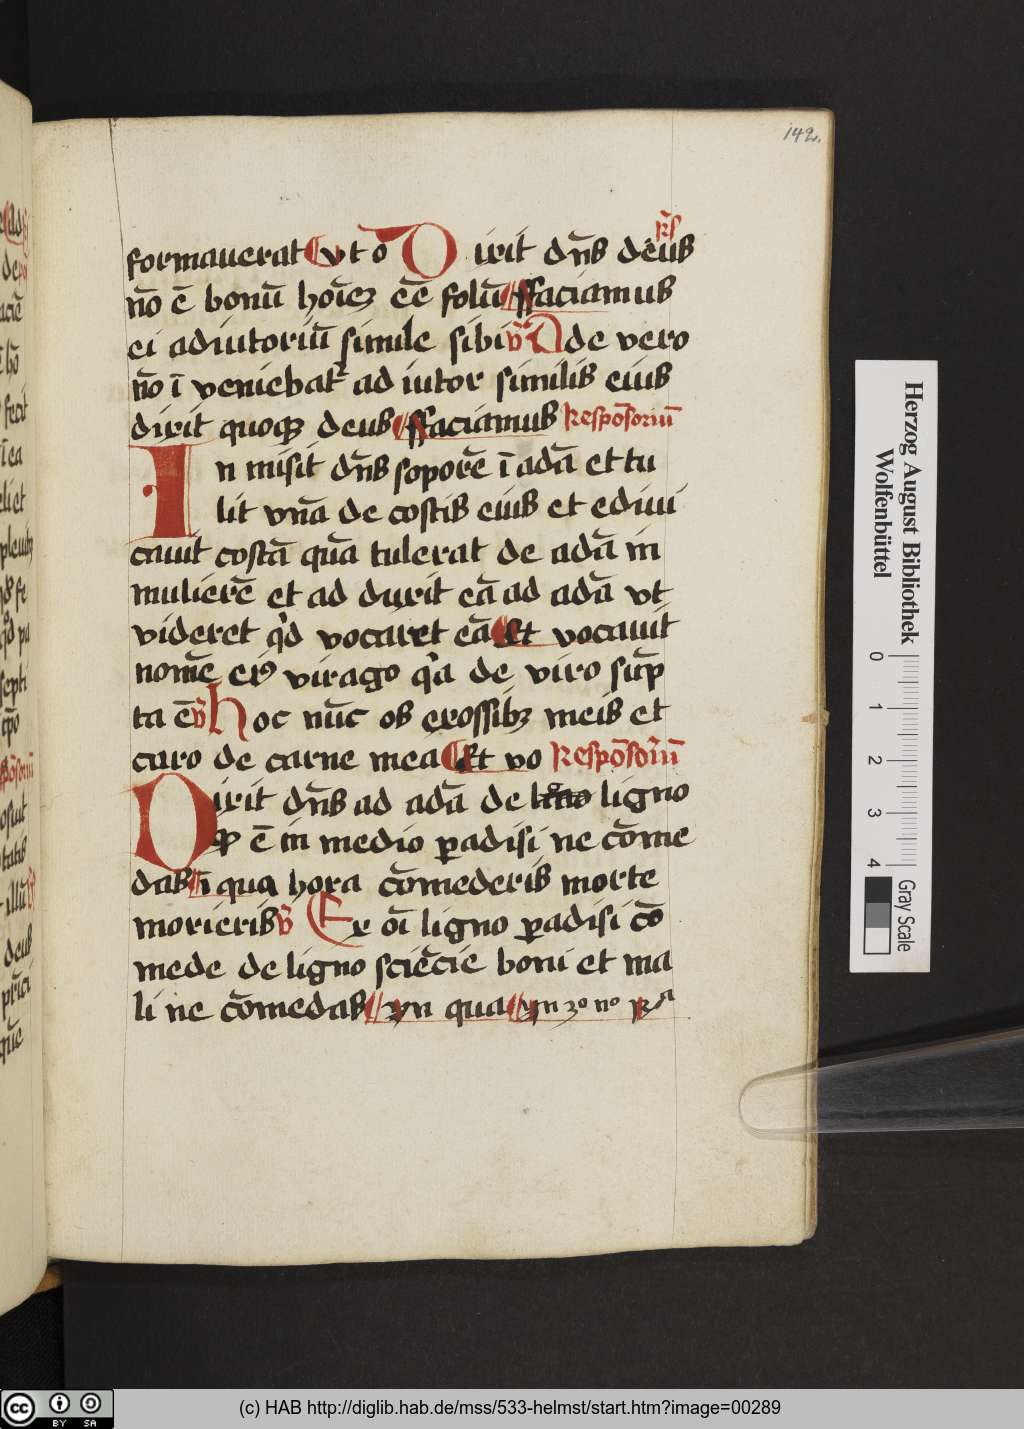 142.
formauerat Ut o Dixit dn̄s deus R̄s
nō ē bonū hoīeꝫ eē solū ffaciamus
ei adiutoriū simile sibi v̄ Ade vero
nō ī veniebat᷑ ad iutor similis eius
dixit quoqꝫ deus ffaciamus Respōsoriū
In misit dn̄s soporē ī adā et tu
lit vnā de costis eius et edifi
cauit costā quā tulerat de adā in
mulierē et ad duxit eā ad adā vt
videret qd vocaret eā Et vocauit
nomē eiꝰ virago qa de viro sūp
ta ē v̄ Hoc nūc os exossibꝫ meis et
caro de carne mea Et vo Respōsoriū
Dixit dn̄s ad adā de ligno
qd ē in medio ꝑadisi ne cōme
das ī qua hora cōmederis morte
morieris v̄ Ex oī ligno ꝑadisi cō
mede de ligno sciēcie boni et ma
li ne cōmedas yn qua yn 3o no
Herzog August Bibliothek
Wolfenbüttel
0 1 2 3 4
Gray Scale
cc BY SA
(c) HAB http://diglib.hab.de/mss/533-helmst/start.htm?image=00289